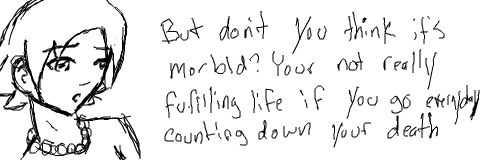 But don't you think it's
morbid? Your not really
fufilling life if you go everyday
counting down your death